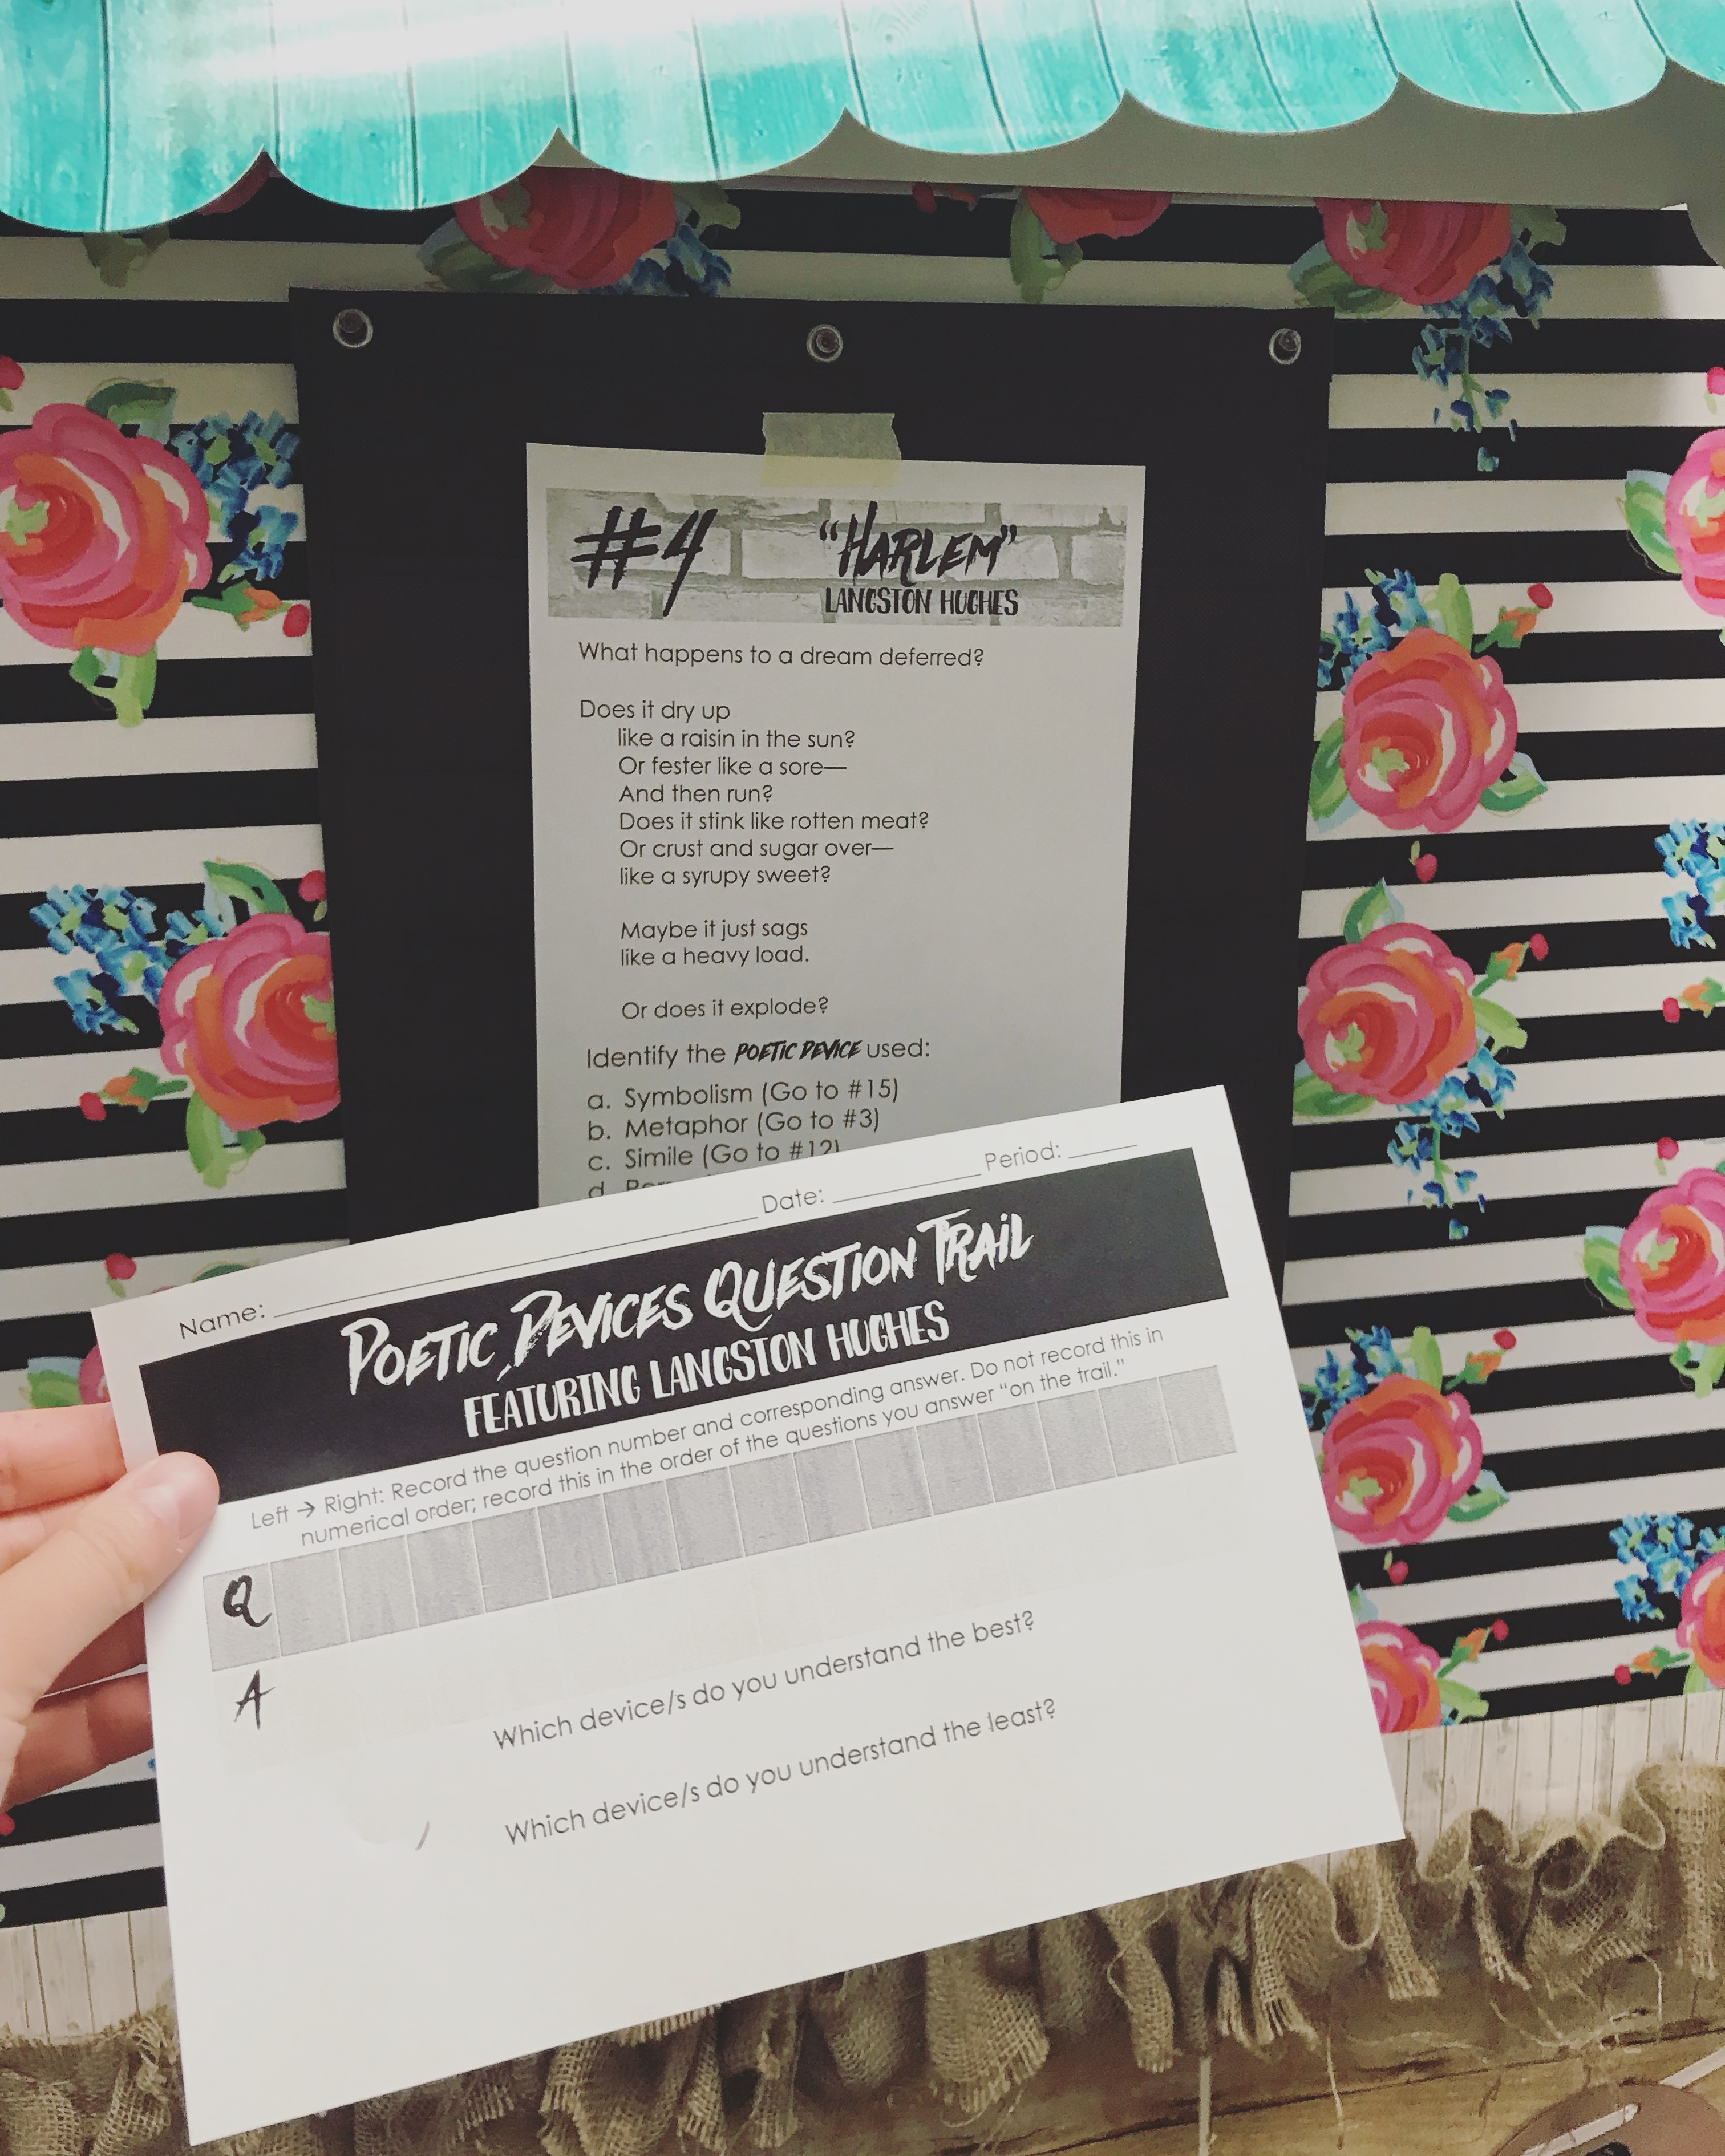 #4 "HARLEM"
LANGSTON HUGHES
What happens to a dream deferred?
Does it dry up
like a raisin in the sun?
Or fester like a sore—
And then run?
Does it stink like rotten meat?
Or crust and sugar over—
like a syrupy sweet?
Maybe it just sags
like a heavy load.
Or does it explode?
Identify the POETIC DEVICE used:
a. Symbolism (Go to #15)
b. Metaphor (Go to #3)
c. Simile (Go to #12)
d.
Name: Date: Period:
POETIC DEVICES QUESTION TRAIL
FEATURING LANGSTON HUGHES
Left → Right: Record the question number and corresponding answer. Do not record this in
numerical order; record this in the order of the questions you answer "on the trail."
Q
A
Which device/s do you understand the best?
Which device/s do you understand the least?